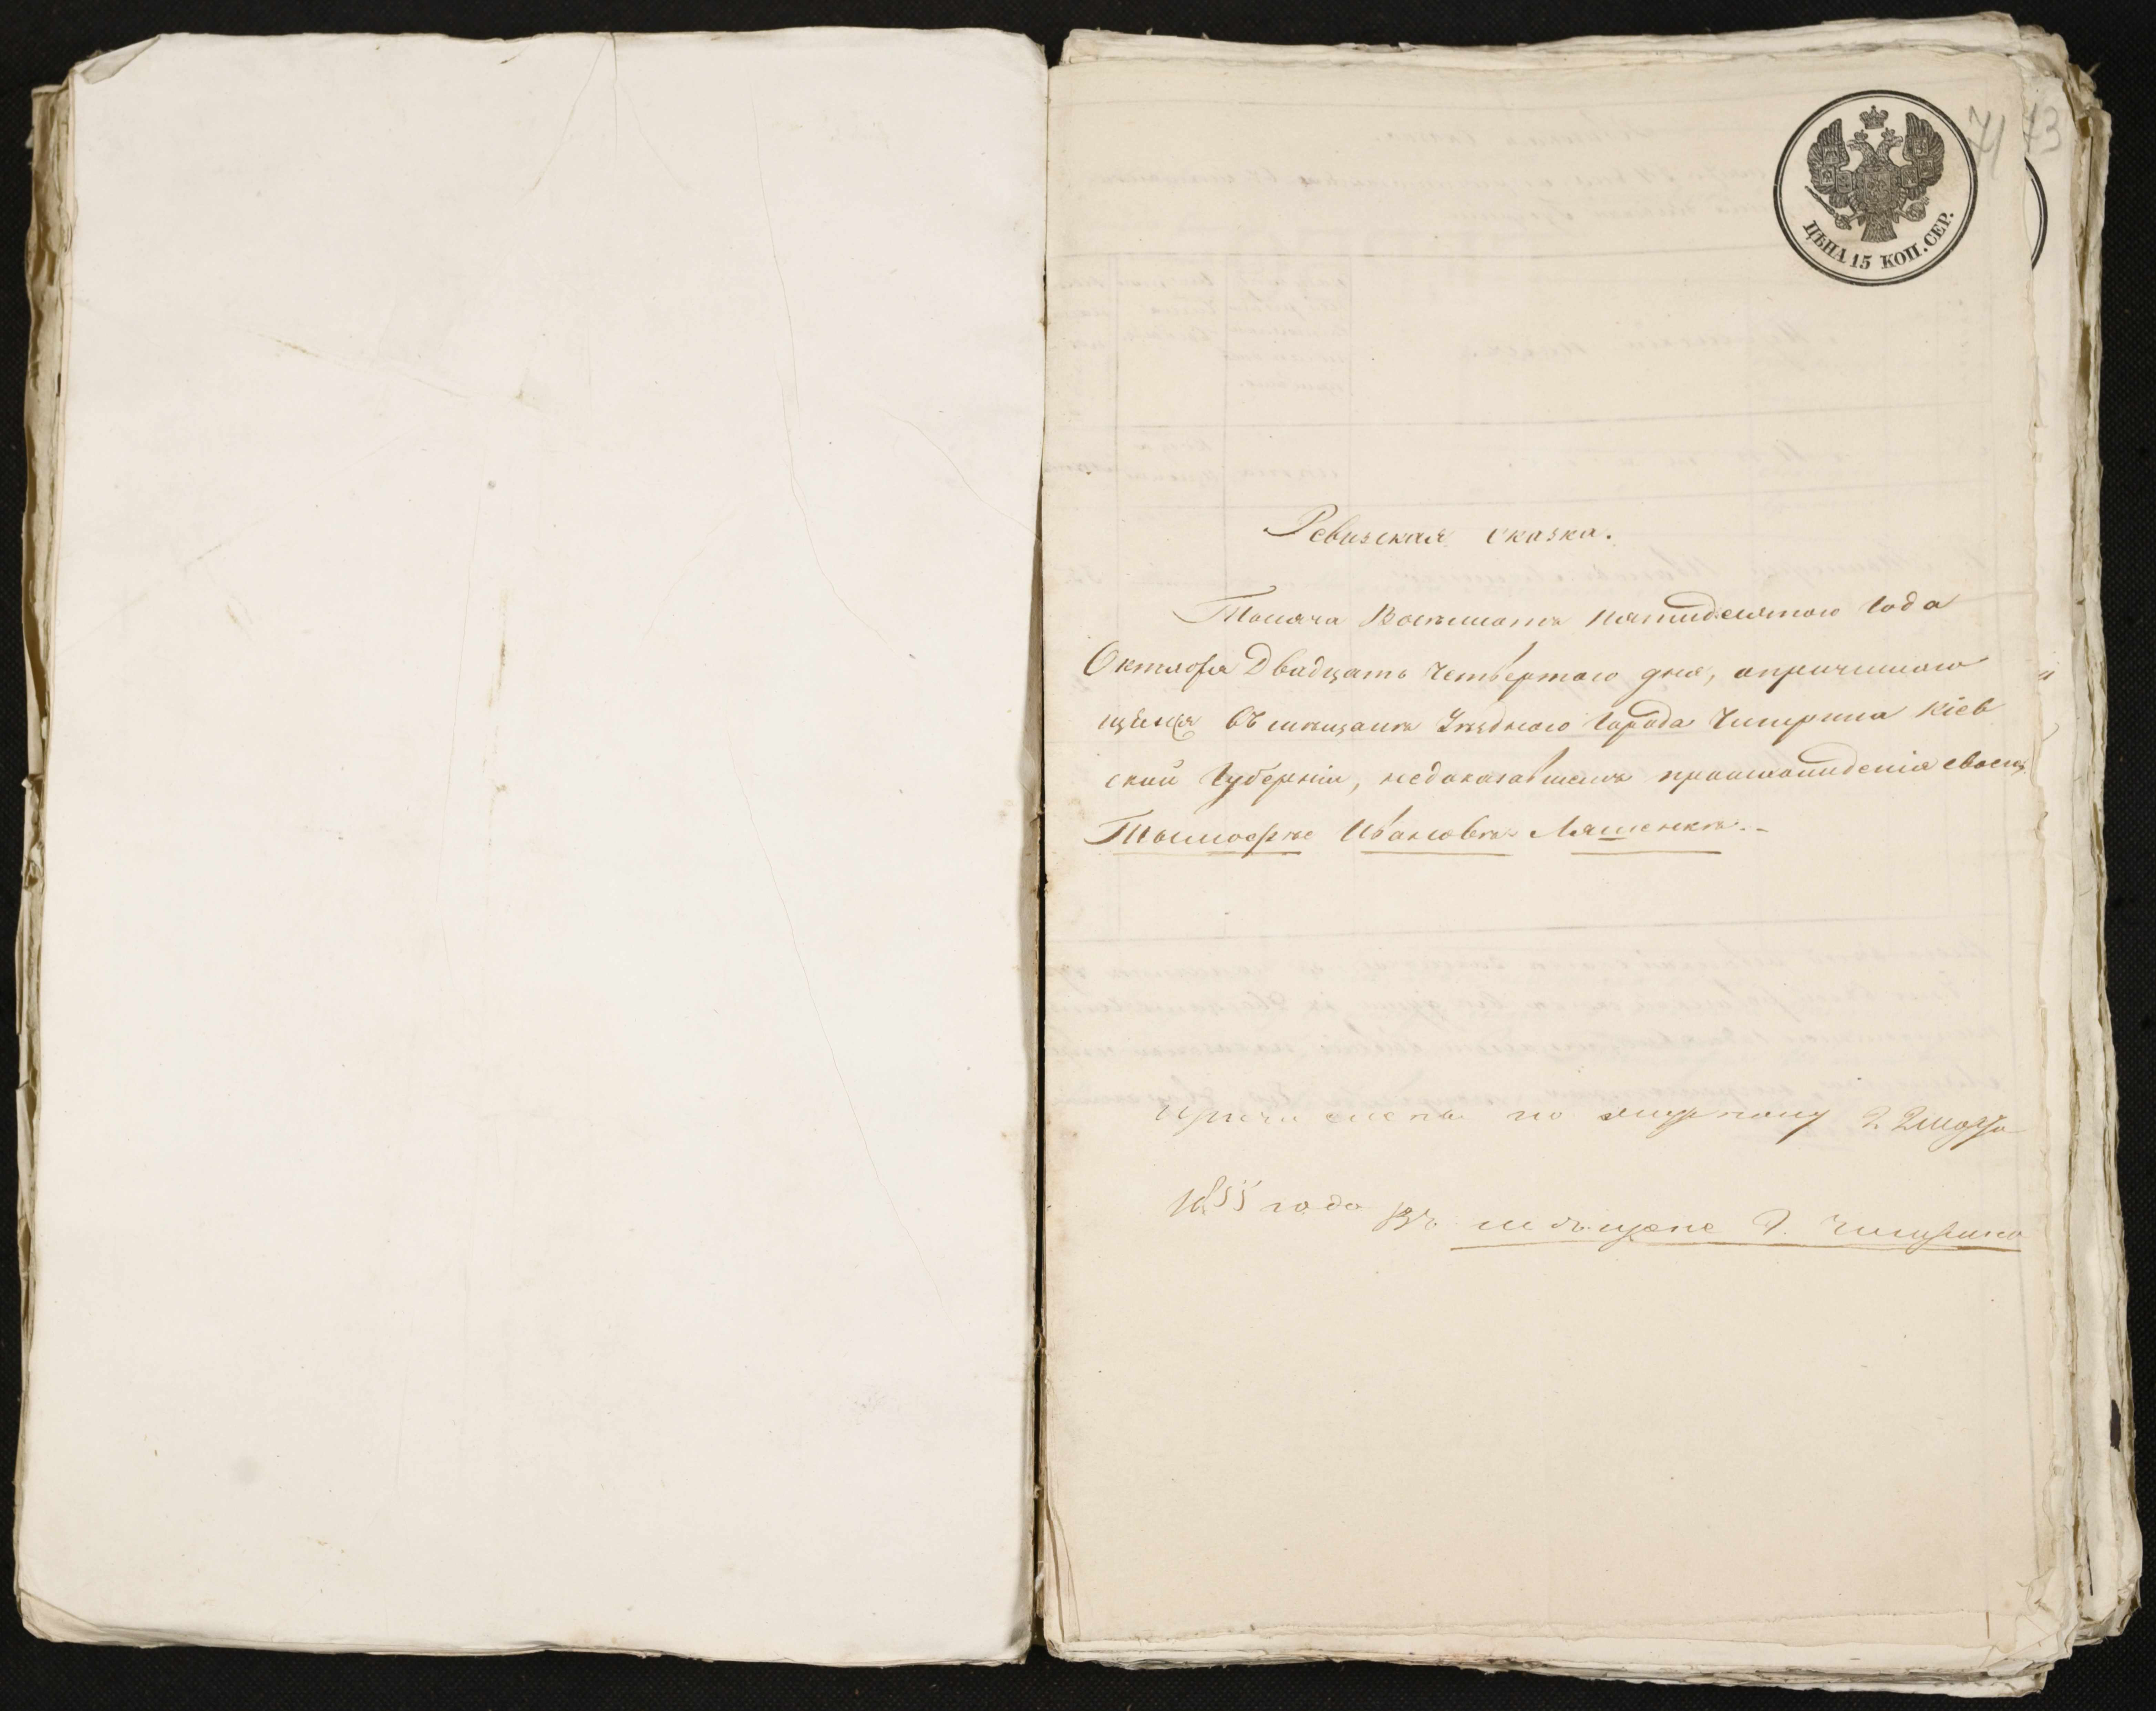 71 73
ЦѢНА 15 КОП. СЕР.
Ревизская сказка.
Тысяча Восемьсотъ пятидесятого Года
Октября Двадцать Четвертого дня, опричисляю
щемся въ мѣщане Уѣздного Города Чигирина Кіев
ской Губерніи, недоказавшемъ происхожденія своего
Тимофѣе Ивановѣ Ляшенкѣ.
причисленъ по 2
1855 года въ мѣщане г. Чигирина